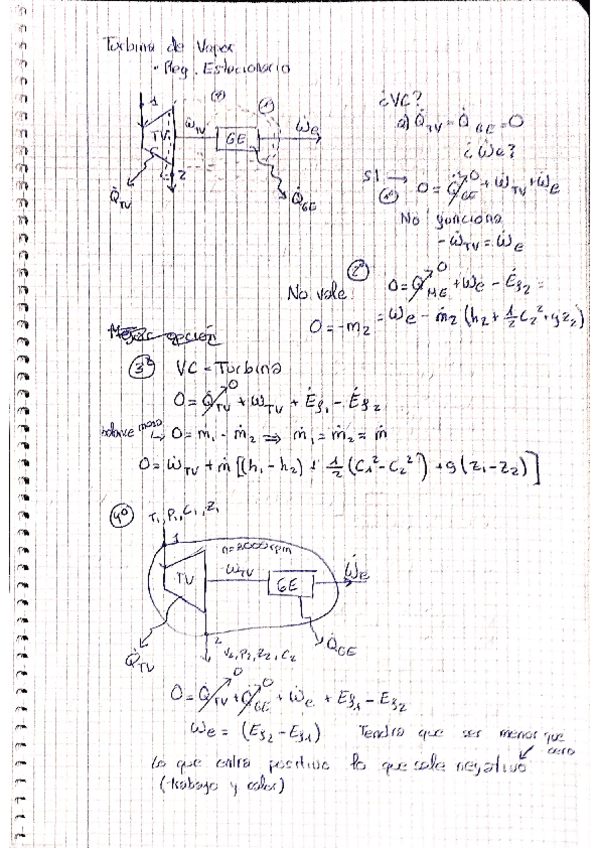 Turbina de Vapor
· Reg. Estacionario
1
TV
Ẇ_TV
GE
Ẇe
2
Q̇_TV
Q̇_GE
¿VC?
a) Q̇_TV = Q̇_GE = 0
¿Ẇe?
SI → 0 = Q̇_GE + Ẇ_TV + Ẇe
0
(1º)
No funciona
-Ẇ_TV = Ẇe
(2º)
No vale
0 = Q̇_ME + Ẇe - Ėf₂ =
0
0 = -m₂
= Ẇe - ṁ₂ (h₂ + 1/2 C₂² + gz₂)
Mejor opción
(3º) VC = Turbina
0 = Q̇_TV + Ẇ_TV + Ėf₁ - Ėf₂
0
balance masa → 0 = ṁ₁ - ṁ₂ ⇒ ṁ₁ = ṁ₂ = ṁ
0 = Ẇ_TV + ṁ [(h₁ - h₂) + 1/2 (C₁² - C₂²) + g(z₁ - z₂)]
(4º) T₁, P₁, C₁, Z₁
1
n = 3000 rpm
TV
Ẇ_TV
GE
Ẇe
2
P₂, Z₂, C₂
Q̇_TV
Q̇_GE
0 = Q̇_TV + Q̇_GE + Ẇe + Ef₁ - Ef₂
0 0
Ẇe = (Ef₂ - Ef₁) Tendra que ser menor que
cero
Lo que entra positivo lo que sale negativo
(trabajo y calor)